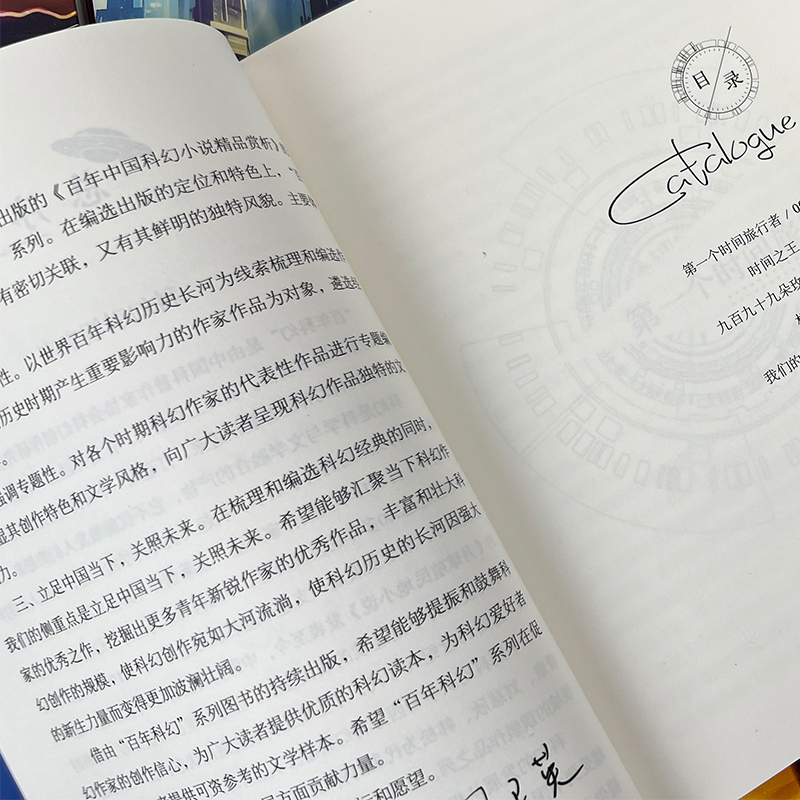 出版的《百年中国科幻小说精品赏析》
系列。在编选出版的定位和特色上，
有密切关联，又有其鲜明的独特风貌。主要
性。以世界百年科幻历史长河为线索梳理和编选
历史时期产生重要影响力的作家作品为对象，遴选
强调专题性。对各个时期科幻作家的代表性作品进行专题
显其创作特色和文学风格，向广大读者呈现科幻作品独特的文
力。
三、立足中国当下，关照未来。在梳理和编选科幻经典的同时，
我们的侧重点是立足中国当下，关照未来。希望能够汇聚当下科幻作
家的优秀之作，挖掘出更多青年新锐作家的优秀作品，丰富和壮大科
幻创作的规模，使科幻创作宛如大河流淌，使科幻历史的长河因强大
的新生力量而变得更加波澜壮阔。
借由“百年科幻”系列图书的持续出版，希望能够提振和鼓舞科
幻作家的创作信心，为广大读者提供优质的科幻读本，为科幻爱好者
提供可资参考的文学样本。希望“百年科幻”系列在促
方面贡献力量。
和愿望。
目录
Catalogue
第一个时间旅行者 /
时间之王
九百九十九朵玫
我们的